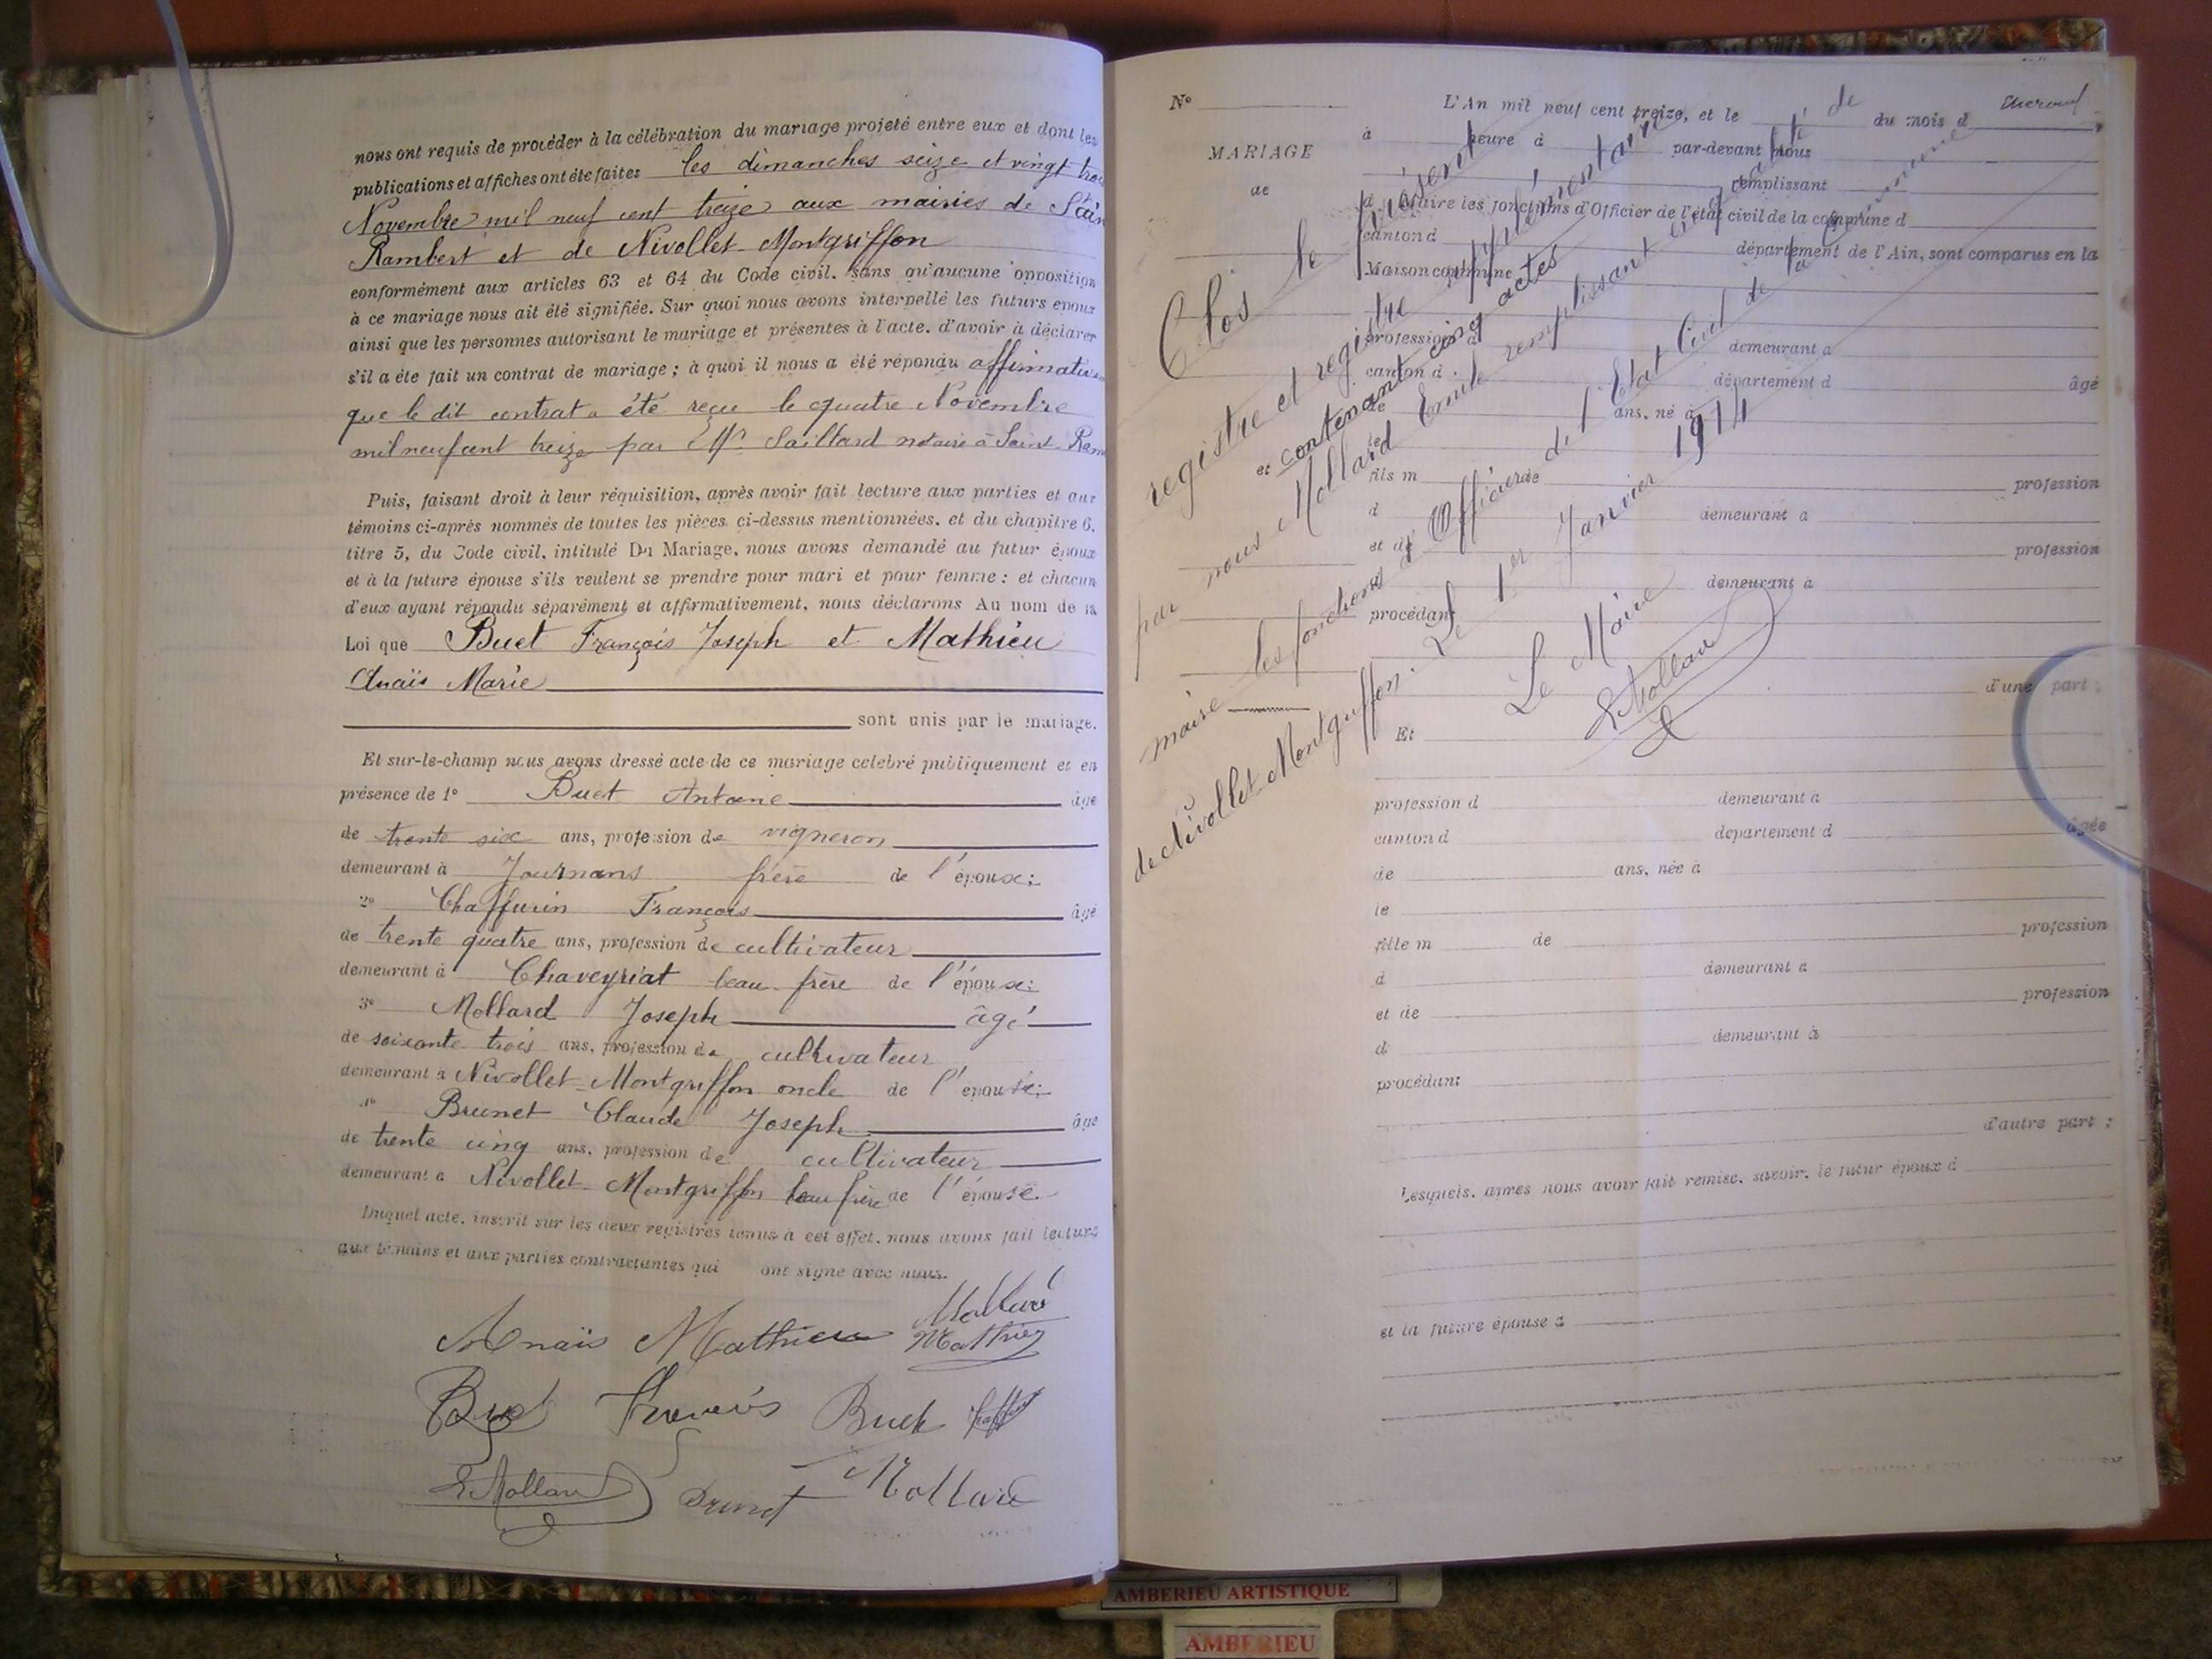 nous ont requis de procéder à la célébration du mariage projeté entre eux et dont les
publications et affiches ont été faites les dimanches seize et vingt trois
Novembre mil neuf cent treize aux mairies de Sain
Rambert et de Nivollet-Montgriffon
conformément aux articles 63 et 64 du Code civil, sans qu'aucune opposition
à ce mariage nous ait été signifiée. Sur quoi nous avons interpellé les futurs époux
ainsi que les personnes autorisant le mariage et présentes à l'acte, d'avoir à déclarer
s'il a été fait un contrat de mariage ; à quoi il nous a été répondu
que le dit contrat a été reçu le quatre Novembre
mil neuf cent treize par Me Saillard notaire à Saint-Ram
Puis, faisant droit à leur réquisition, après avoir fait lecture aux parties et aux
témoins ci-après nommés de toutes les pièces ci-dessus mentionnées, et du chapitre 6,
titre 5, du Code civil, intitulé Du Mariage, nous avons demandé au futur époux
et à la future épouse s'ils veulent se prendre pour mari et pour femme : et chacun
d'eux ayant répondu séparément et affirmativement, nous déclarons Au nom de la
Loi que Buet François Joseph et Mathieu
Anaïs Marie
sont unis par le mariage.
Et sur-le-champ nous avons dressé acte de ce mariage célébré publiquement et en
présence de 1° Buet Antoine âgé
de trente six ans, profession de vigneron
demeurant à Journans frère de l'époux ;
2° Chaffurin François âgé
de trente quatre ans, profession de cultivateur
demeurant à Chaveyriat beau-frère de l'époux ;
3° Mollard Joseph âgé
de soixante trois ans, profession de cultivateur
demeurant à Nivollet-Montgriffon oncle de l'épouse ;
4° Brunet Claude Joseph âgé
de trente cinq ans, profession de cultivateur
demeurant à Nivollet-Montgriffon beau frère de l'épouse.
Duquel acte, inscrit sur les deux registres tenus à cet effet, nous avons fait lecture
aux témoins et aux parties contractantes qui ont signé avec nous.
Anaïs Mathieu
Buet François Buet
E Mollard Brunet Mollard
N°
MARIAGE
de
L'An mil neuf cent treize, et le du mois d
à heure à par-devant nous
remplissant
d Maire les fonctions d'Officier de l'état civil de la commune d
canton d département de l'Ain, sont comparus en la
Maison commune
profession d demeurant à
canton d département d âgé
de ans, né à
le
fils m de profession
d demeurant à
et de profession
d demeurant à
procédant
d'une part ;
Et
profession d demeurant à
canton d département d âgée
de ans, née à
le
fille m de profession
d demeurant à
et de profession
d demeurant à
procédant
d'autre part ;
Lesquels, après nous avoir fait remise, savoir, le futur époux d
et la future épouse d
Clos le présent
registre et registre supplémentaire
et contenant cinq actes
par nous Mollard Emile remplissant en qualité de
maire les fonctions d'Officier de l'Etat Civil de la commune
de Nivollet-Montgriffon. Le 1er Janvier 1914
Le Maire
E Mollard
AMBERIEU ARTISTIQUE
AMBERIEU